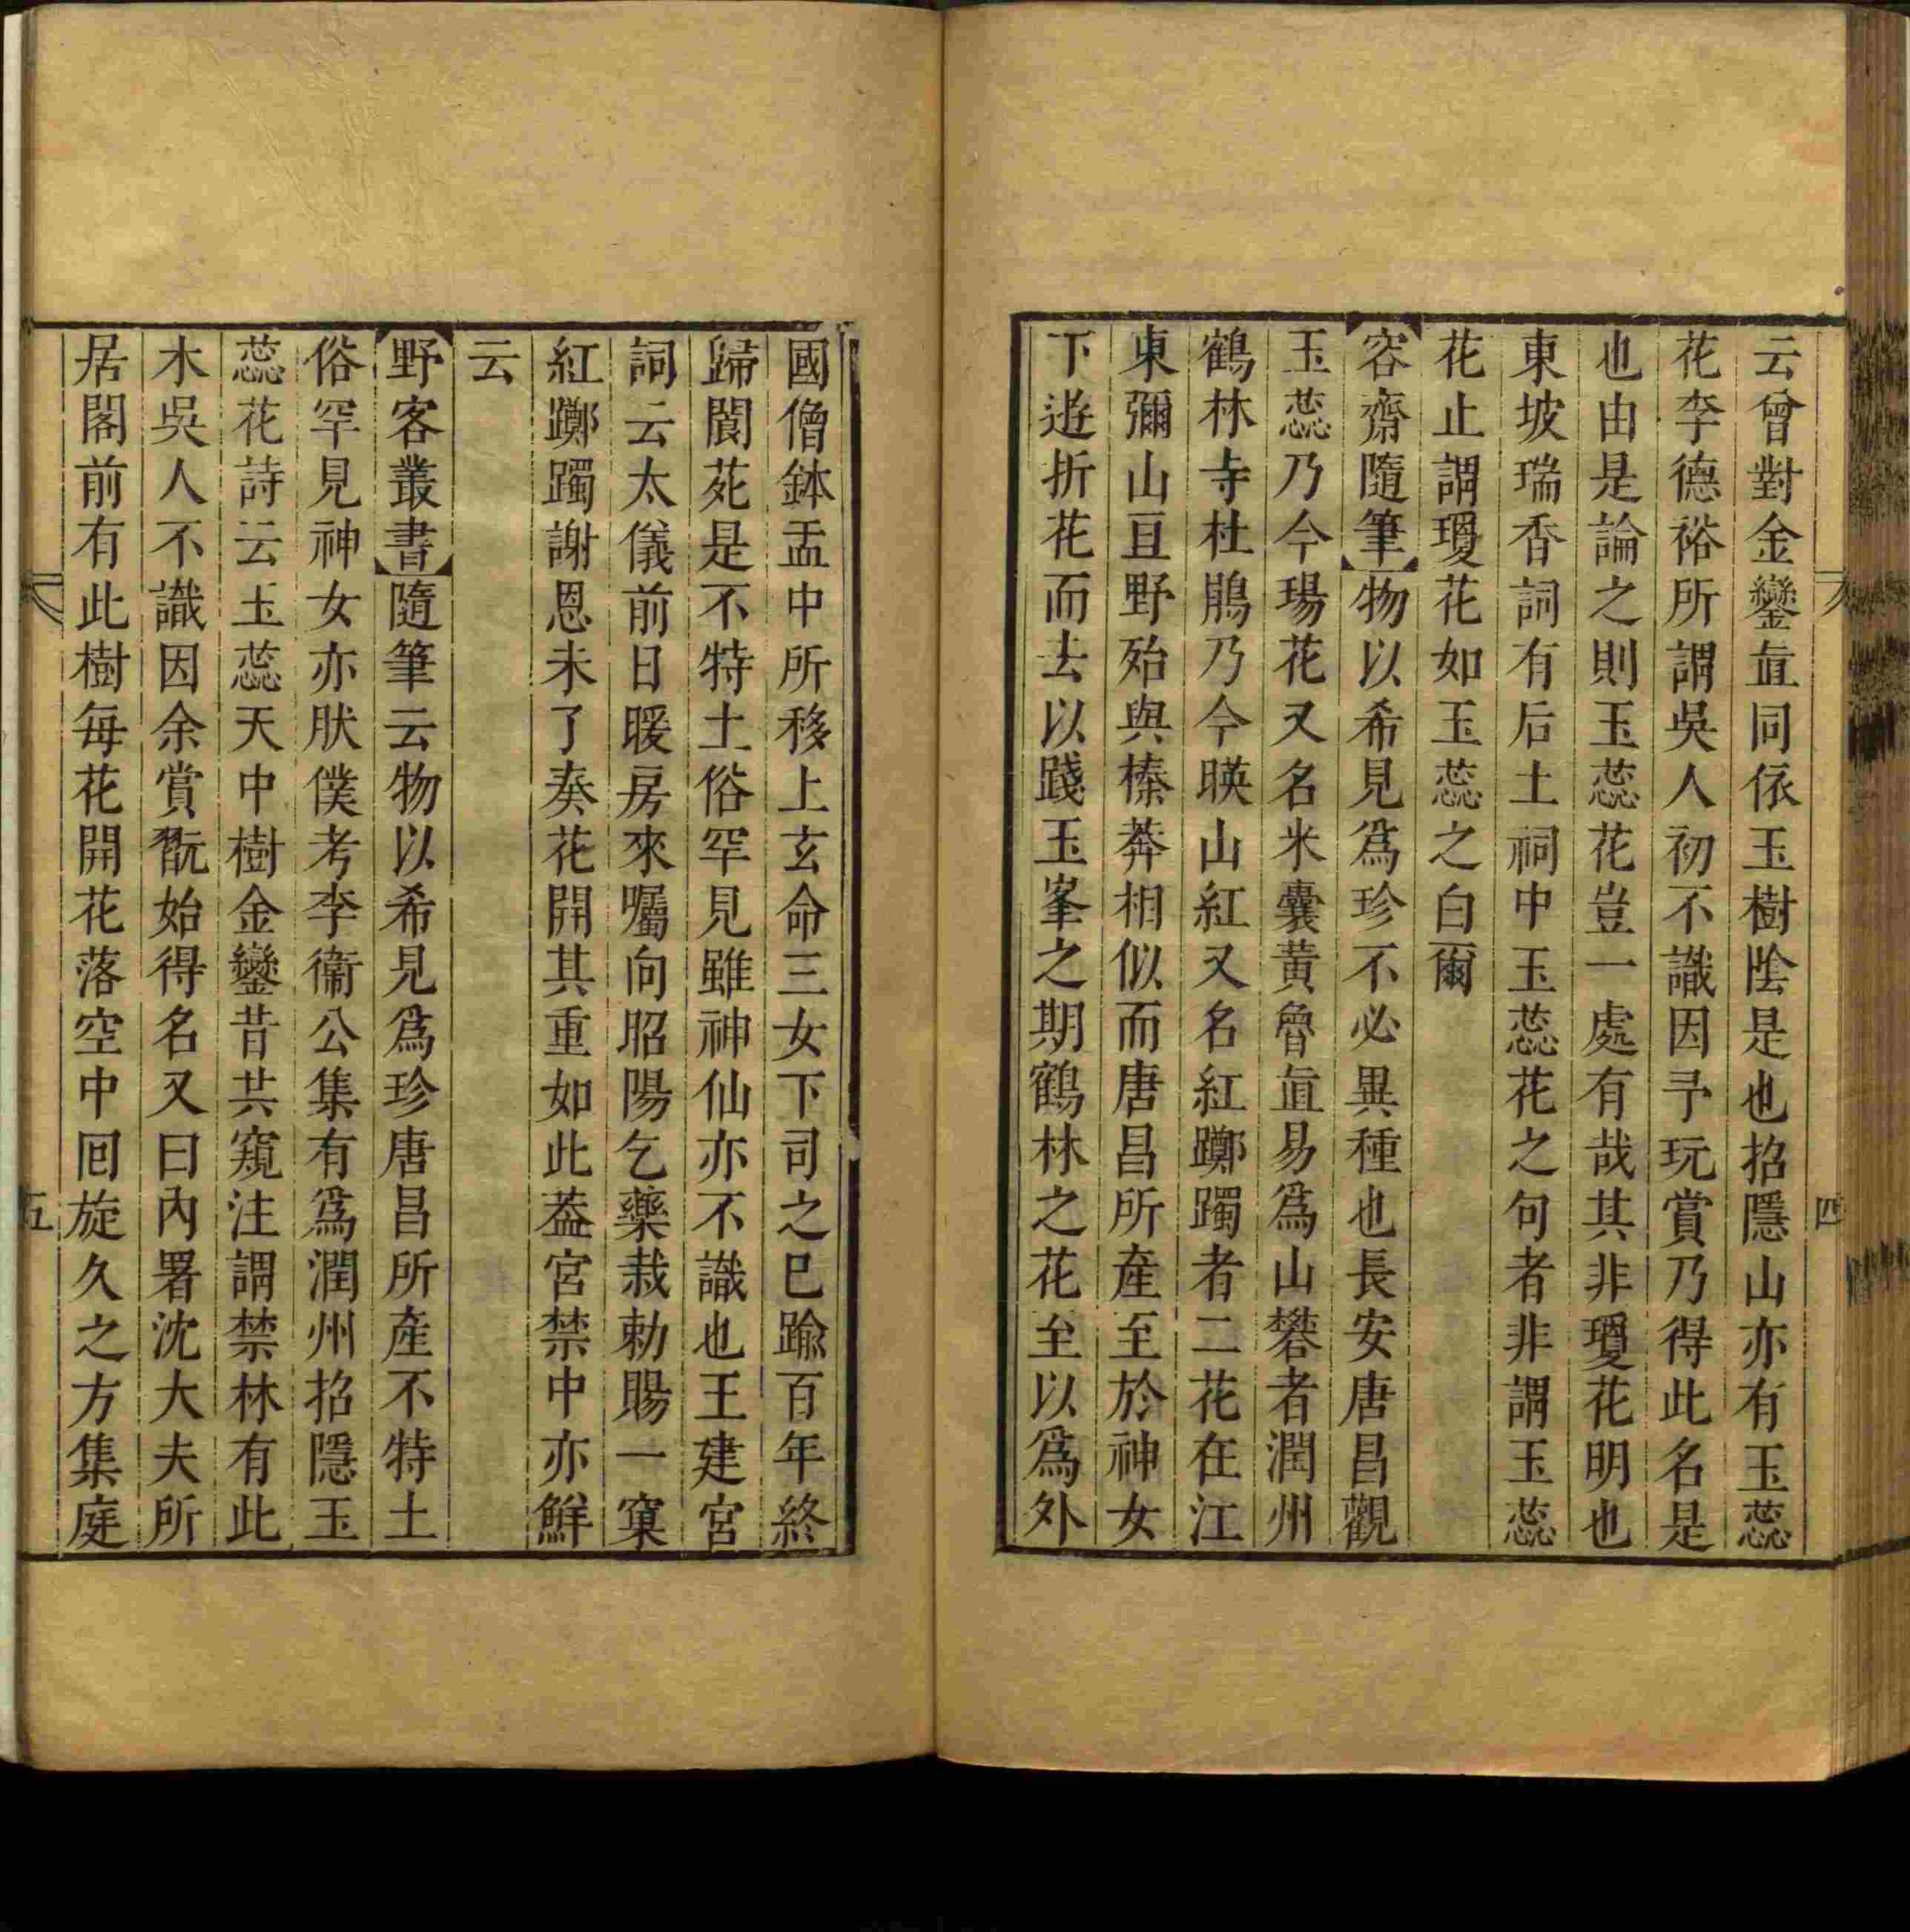 云曾對金鑾直同依玉樹陰是也招隱山亦有玉蕊
花李德裕所謂吳人初不識因予玩賞乃得此名是
也由是論之則玉蕊花豈一處有哉其非瓊花明也
東坡瑞香詞有后土祠中玉蕊花之句者非謂玉蕊
花止謂瓊花如玉蕊之白爾
容齋隨筆物以希見爲珍不必異種也長安唐昌觀
玉蕊乃今瑒花又名米囊黃魯直易爲山礬者潤州
鶴林寺杜鵑乃今暎山紅又名紅躑躅者二花在江
東彌山亘野殆與榛莽相似而唐昌所產至於神女
下遊折花而去以踐玉峯之期鶴林之花至以爲外
四
國僧鉢盂中所移上玄命三女下司之巳踰百年終
歸閬苑是不特土俗罕見雖神仙亦不識也王建宮
詞云太儀前日暖房來囑向昭陽乞藥栽勅賜一窠
紅躑躅謝恩未了奏花開其重如此葢宮禁中亦鮮
云
野客叢書隨筆云物以希見爲珍唐昌所產不特土
俗罕見神女亦肰僕考李衞公集有爲潤州招隱玉
蕊花詩云玉蕊天中樹金鑾昔共窺注謂禁林有此
木吳人不識因余賞翫始得名又曰內署沈大夫所
居閣前有此樹每花開花落空中囘旋久之方集庭
五